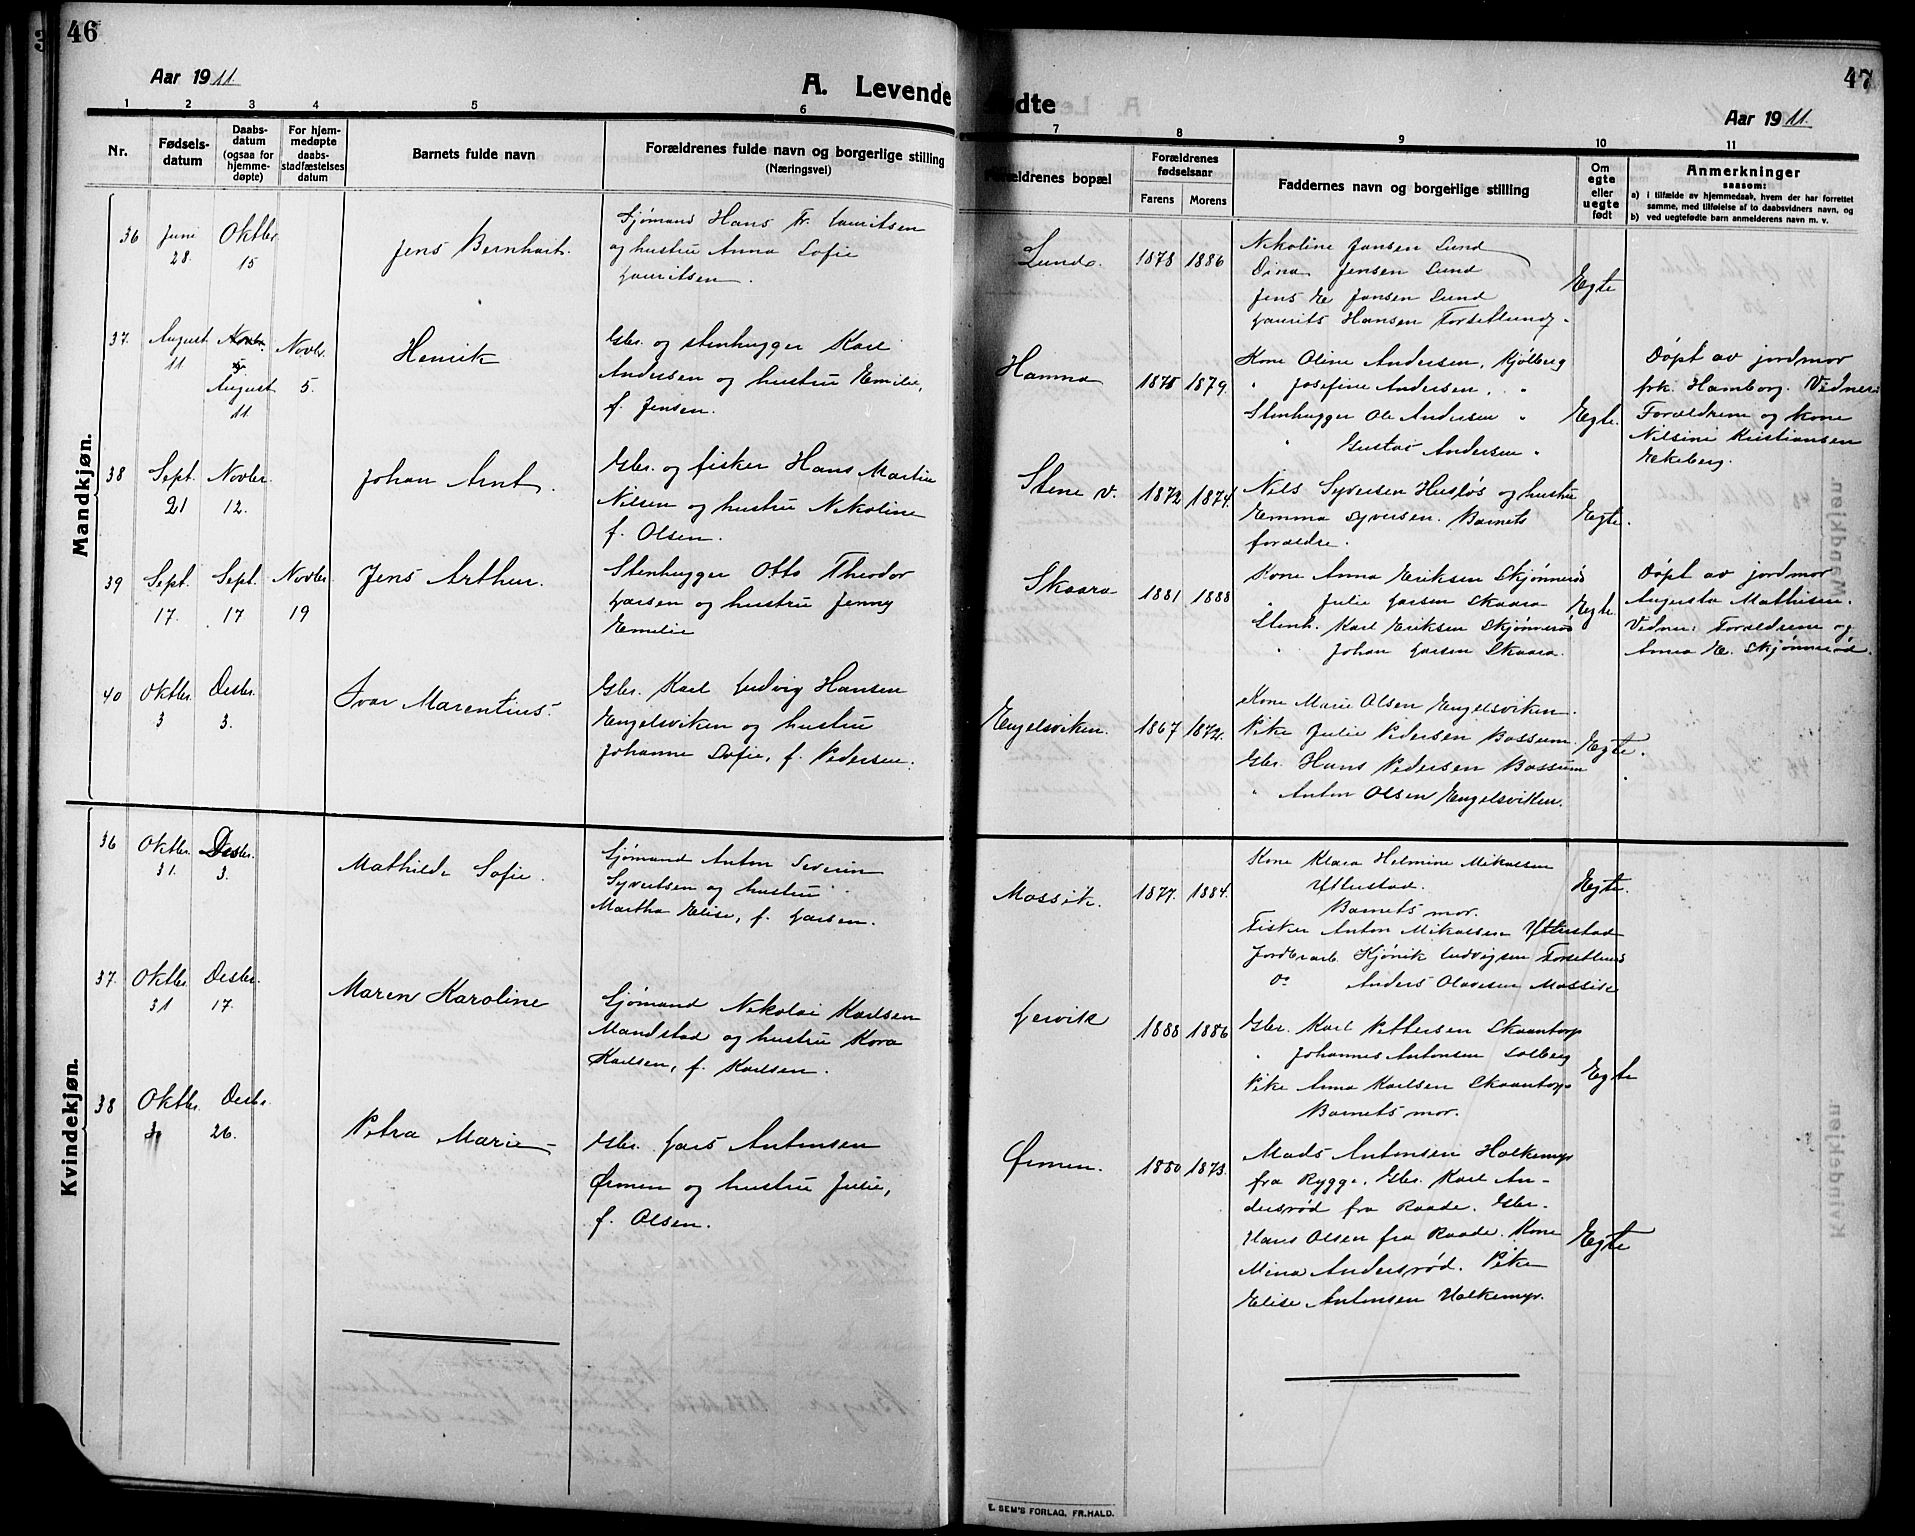 46
Aar 1911.
A. Levende
1 2 3 4 5 6
Nr.
Fødsels-
datum
Daabs-
datum
(ogsaa for
hjemme-
døpte)
For hjem-
medøpte
daabs-
stadfæstelses
datum
Barnets fulde navn
Forældrenes fulde navn og borgerlige stilling
(Næringsvei)
Mandkjøn.
36
Juni
28.
Oktbr
15
Jens Bernhart.
Sjømand Hans Fr. Lauritsen
og hustru Anna Sofie
Lauritsen.
37.
August
11
Novbr.
5.
August
11
Novbr.
5.
Henrik
Gbr. og stenhugger Karl
Andersen og hustru Emilie,
f. Jensen.
38
Sept.
21
Novbr.
12.
Johan Arnt.
Gbr. og fisker Hans Martin
Nilsen og hustru Nikoline
f. Olsen.
39
Sept.
17.
Sept.
17
Novbr
19
Jens Arthur.
Stenhugger Otto Theodor
Larsen og hustru Jenny
Emilie
40
Oktbr.
3
Desbr.
3.
Ivar Marentius.
Gbr. Karl Ludvig Hansen
Engelsviken og hustru
Johanne Sofie, f. Pedersen.
Kvindekjøn.
36
Oktbr.
31.
Desbr.
3.
Mathilde Sofie.
Sjømand Anton Severin
Syvertsen og hustru
Martha Elise, f. Larsen.
37.
Oktbr.
31
Desbr.
17.
Maren Karoline
Sjømand Nikolai Karlsen
Mandstad og hustru Kora
Karlsen, f. Karlsen.
38
Oktbr.
Desbr.
26.
Petra Marie
Gbr. Lars Antonsen
Ørmen og hustru Julie,
f. Olsen.
47
fødte
Aar 1911.
7 8 9 10 11
Forældrenes bopæl
Forældrenes
fødselsaar
Farens Morens
Faddernes navn og borgerlige stilling
Om
egte
eller
uegte
født
Anmerkninger
saasom:
a) i tilfælde av hjemmedaab, hvem der har forrettet
samme, med tilføielse af to daabsvidners navn, og
b) ved uegtefødte barn anmelderens navn m. v.
Lunde.
1878 1886
Nikoline Jansen Lund
Dina Jensen Lund
Jens E Jansen Lund
Laurits Hansen Torsetlund
Egte
Hamna
1875 1879.
Kone Oline Andersen, Kjølberg
" Josefine Andersen, "
Stenhugger Ole Andersen "
" Gustav Andersen "
Egte.
Døpt av jordmor
frk. Hamborg. Vidner:
Forældrene og kone
Nilsine Kristiansen
Ekeberg.
Stene v.
1872 1874.
Nils Syversen Husløs og hustru
Emma Syversen. Barnets
forældre.
Egte.
Skaara
1881 1888
Kone Anna Eriksen Skjønnerød
" Julie Larsen Skaara
Stenh. Karl Eriksen Skjønnerød
" Johan Larsen Skaara.
Egte
Døpt av jordmor
Augusta Mathisen.
Vidner: Forældrene og
Anna E. Skjønnerød.
Engelsviken.
1867 1872.
Kone Marie Olsen Engelsviken.
Pike Julie Pedersen Bossum.
Gbr. Hans Pedersen Bossum
" Anton Olsen Engelsviken.
Egte.
Mossik.
1877. 1884.
Kone Klara Helmine Mikalsen
Ytterstad.
Barnets mor.
Fisker Anton Mikalsen Ytterstad
Jordbrarb. Hjørik Ludvigsen Torsetlund
Do Anders Olavesen Mossik
Egte.
Lervik
1888 1886
Gbr. Karl Pettersen Skaantorp
" Johannes Antonsen Solberg
Pike Anna Karlsen Skaantorp
Barnets mor.
Egte
Ørmen.
1880 1873.
Mads Antonsen Holkemyr
fra Rygge. Gbr. Karl An-
dersrød fra Raade. Gbr.
Hans Olsen fra Raade. Kone
Mina Andersrød. Pike
Elise Antonsen Holkemyr.
Egte
E. SEM'S FORLAG, FR.HALD.